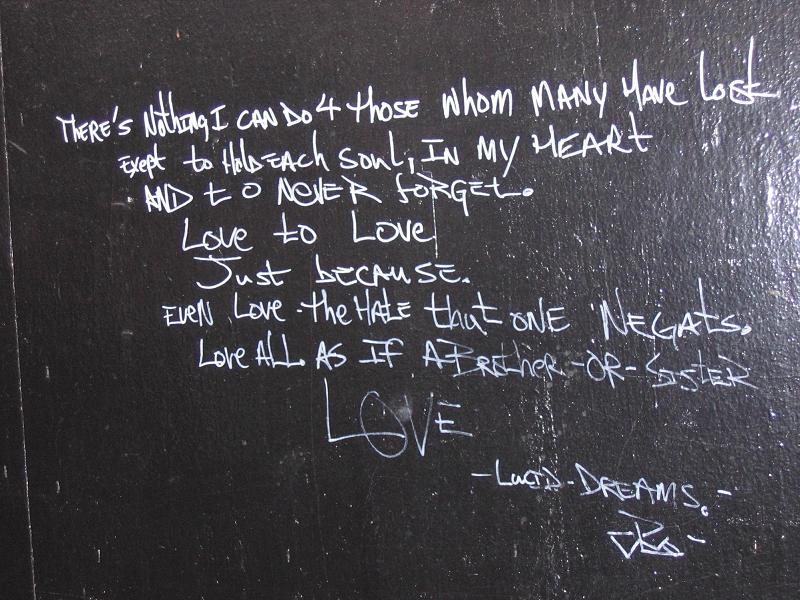 THERE'S NOthiNG I CAN DO 4 those whom MANY HAVE Lost
Exept to Hold EACh soul, IN MY HEARt
AND tO NeVER foRGEt.
Love to Love
Just because.
EVEN Love the HATE that ONE NEGAts.
Love ALL AS IF A BRother -OR- SistER
LOVE
- LuCID - DREAMS. -